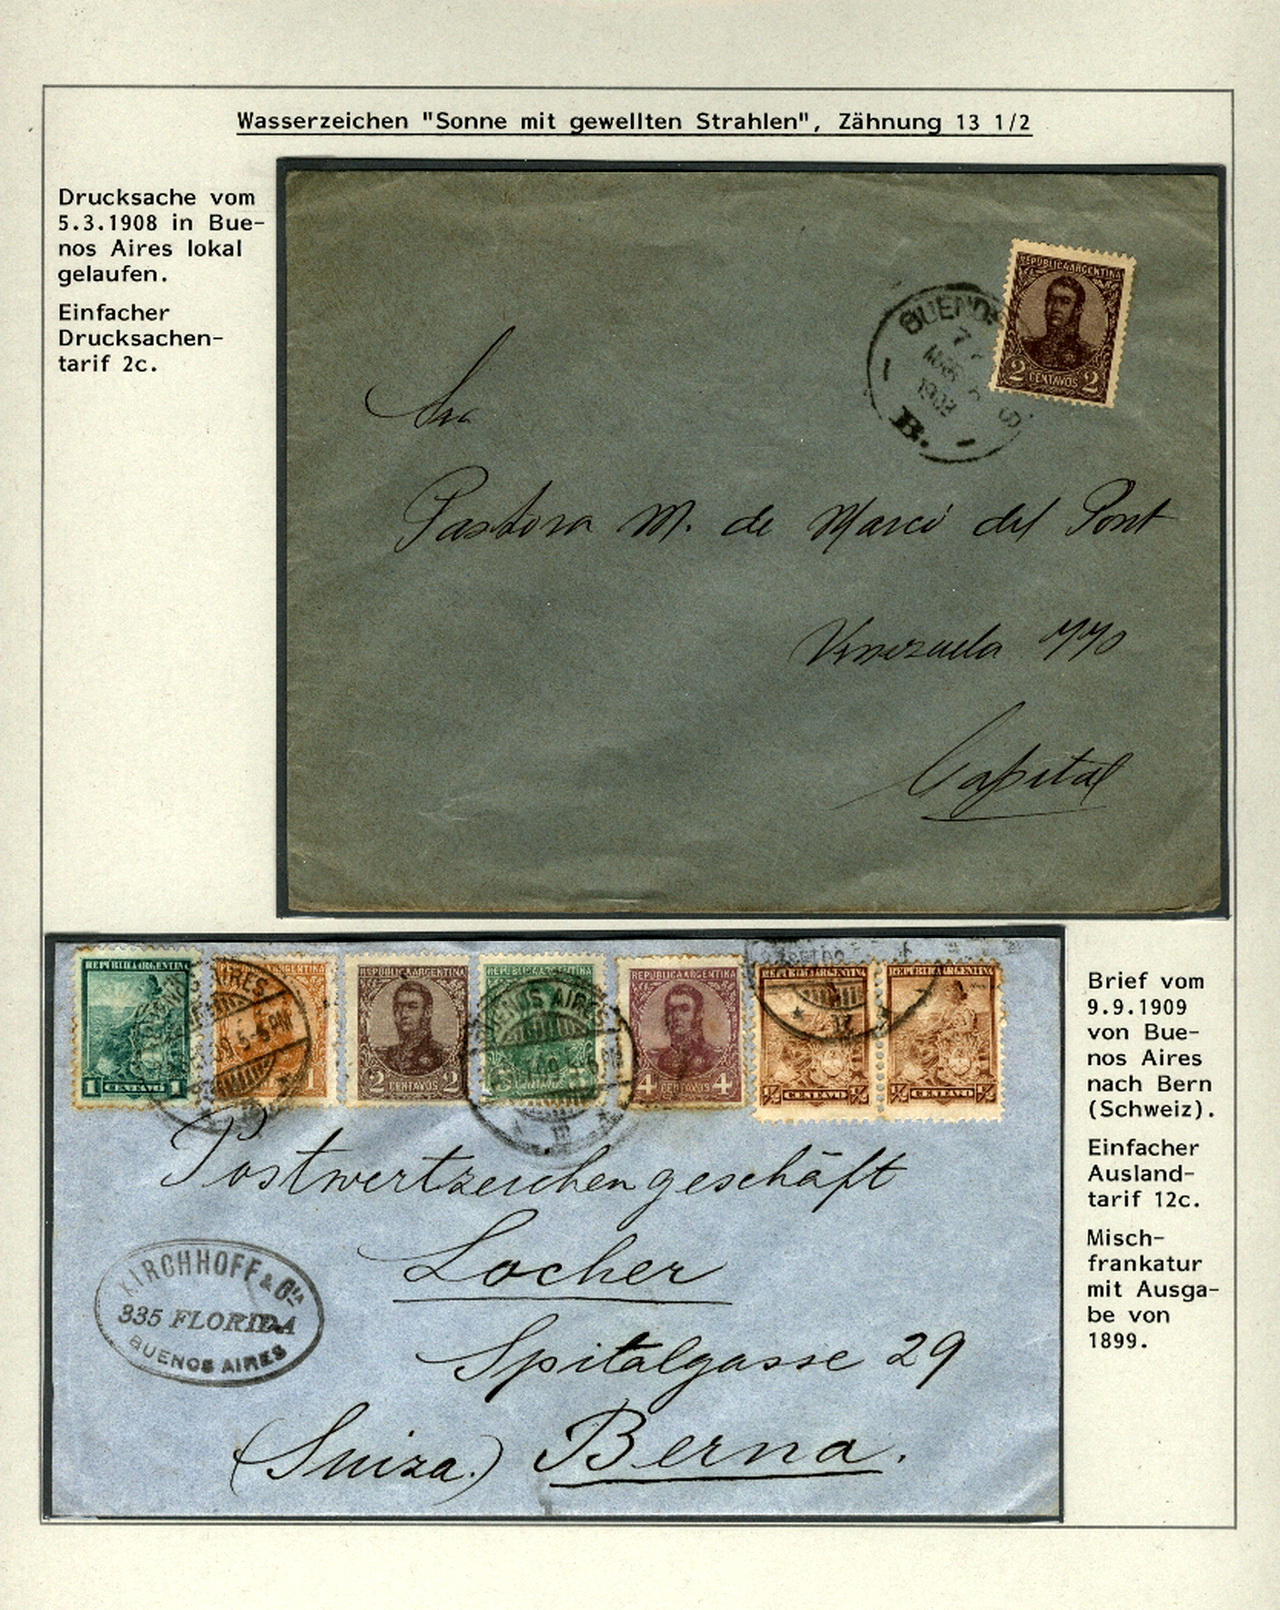 Wasserzeichen "Sonne mit gewellten Strahlen", Zähnung 13 1/2
Drucksache vom
5.3.1908 in Bue-
nos Aires lokal
gelaufen.
Einfacher
Drucksachen-
tarif 2c.
REPUBLICA ARGENTINA
2 CENTAVOS 2
BUENOS
B.
Sra
Pastora M. de Marcó del Pont
Venezuela 770
Capital
REPUBLICA ARGENTINA
1 CENTAVO 1
ARGENTINA
1
REPUBLICA ARGENTINA
2 CENTAVOS 2
REPUBLICA ARGENTINA
CENTAVOS
REPUBLICA ARGENTINA
4 CENTAVOS 4
REPUBLICA ARGENTINA
½ CENTAVO ½
REPUBLICA ARGENTINA
½ CENTAVO ½
AIRES
5-6PM
BUENOS AIRES
Postwertzeichengeschäft
Locher
Spitalgasse 29
(Suiza.) Berna.
KIRCHHOFF & Cía
335 FLORIDA
BUENOS AIRES
Brief vom
9.9.1909
von Bue-
nos Aires
nach Bern
(Schweiz).
Einfacher
Ausland-
tarif 12c.
Misch-
frankatur
mit Ausga-
be von
1899.